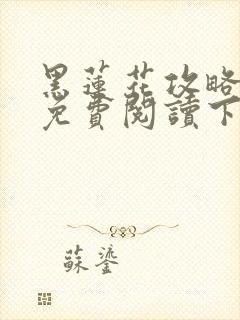 黑蓮花攻略
免費閱讀下
蘇鎏